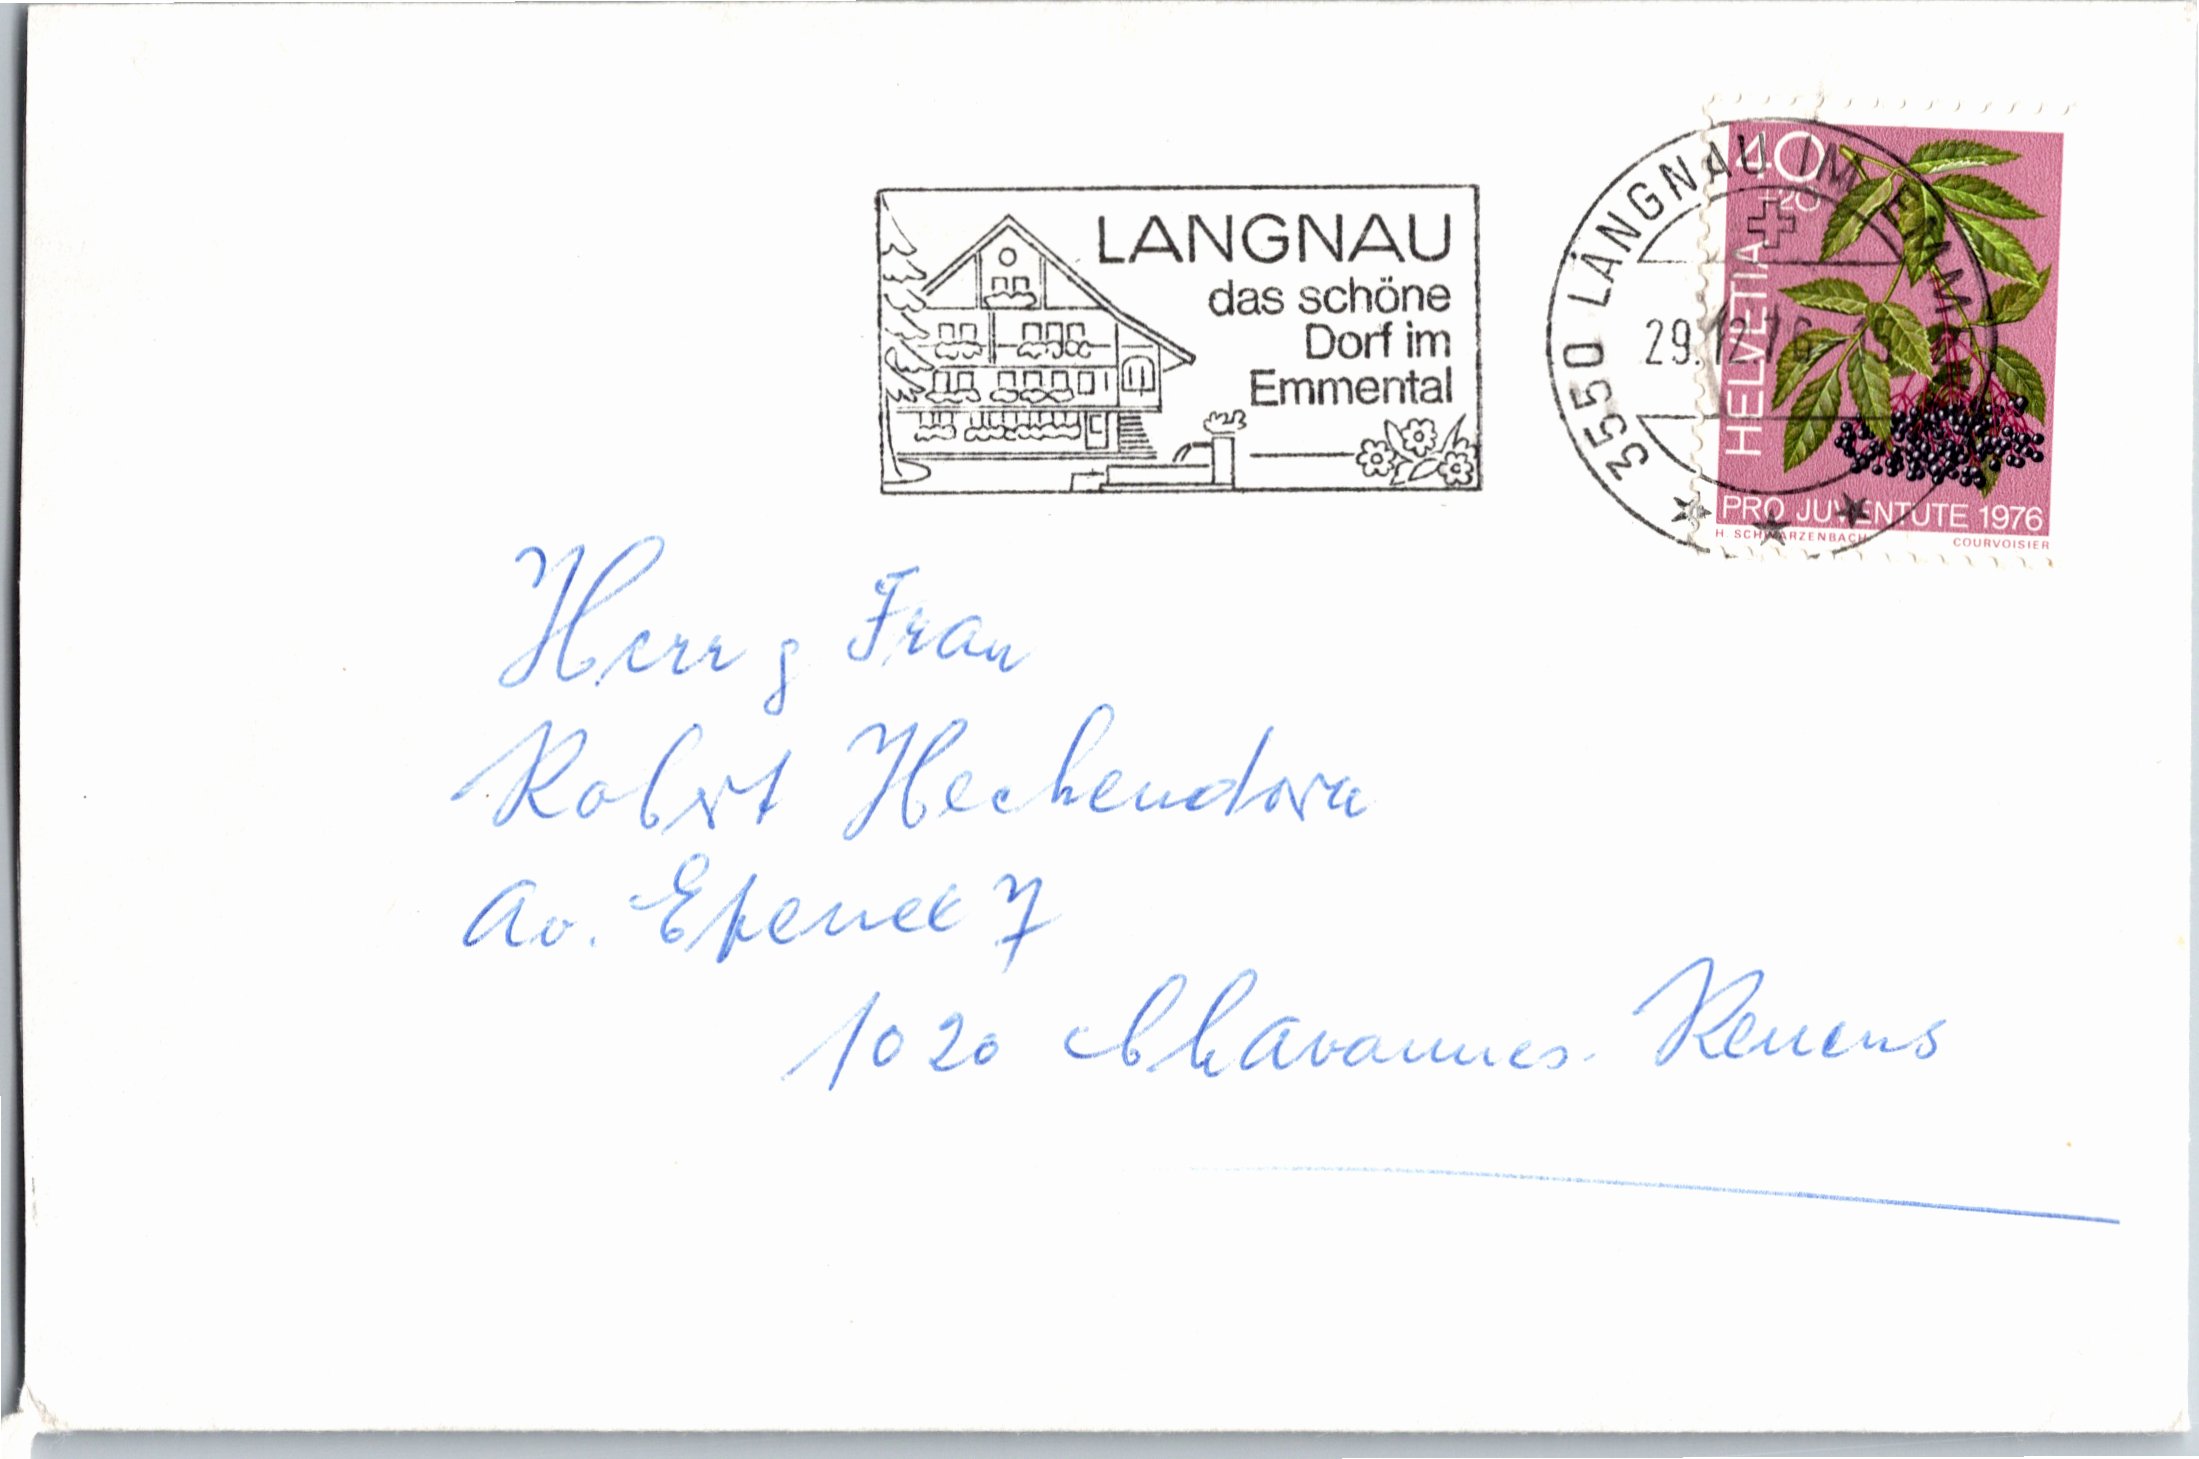 LANGNAU
das schöne
Dorf im
Emmental
3550 LANGNAU IM EMMENTAL
29.12.76
40
+20
HELVETIA
PRO JUVENTUTE 1976
H SCHWARZENBACH COURVOISIER
Herr & Frau
Robert Hechendorn
Av. Epenex 7
1020 Chavannes-Renens